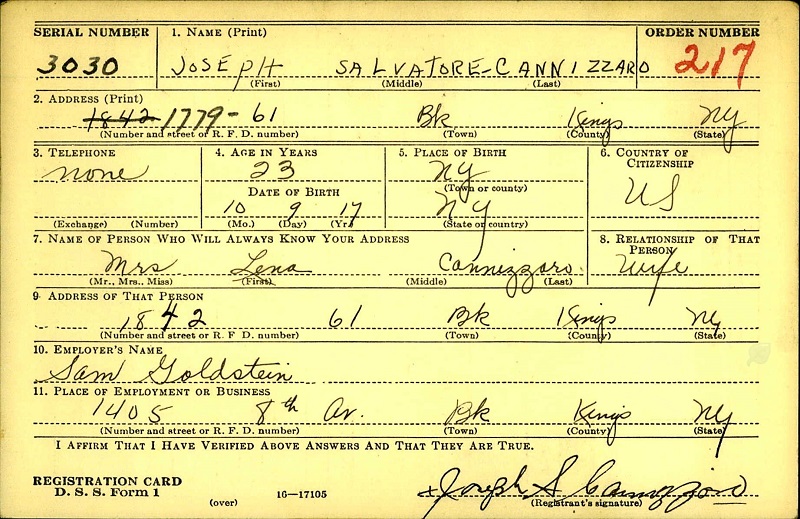 SERIAL NUMBER 1. NAME (Print) ORDER NUMBER
3030 JOSEPH SALVATORE-CANNIZZARO 217
(First) (Middle) (Last)
2. ADDRESS (Print)
1842 1779- 61 Bk Kings NY
(Number and street or R. F. D. number) (Town) (County) (State)
3. TELEPHONE 4. AGE IN YEARS 5. PLACE OF BIRTH 6. COUNTRY OF CITIZENSHIP
none 23 NY US
DATE OF BIRTH (Town or county)
10 9 17 NY
(Exchange) (Number) (Mo.) (Day) (Yr.) (State or country)
7. NAME OF PERSON WHO WILL ALWAYS KNOW YOUR ADDRESS 8. RELATIONSHIP OF THAT PERSON
Mrs Lena Cannizzaro. Wife
(Mr., Mrs., Miss) (First) (Middle) (Last)
9. ADDRESS OF THAT PERSON
1842 61 Bk Kings NY
(Number and street or R. F. D. number) (Town) (County) (State)
10. EMPLOYER'S NAME
Sam Goldstein
11. PLACE OF EMPLOYMENT OR BUSINESS
1405 8th Av. Bk Kings NY
(Number and street or R. F. D. number) (Town) (County) (State)
I AFFIRM THAT I HAVE VERIFIED ABOVE ANSWERS AND THAT THEY ARE TRUE.
REGISTRATION CARD
D. S. S. Form 1 (over) 16—17105
x Joseph S Cannizzaro
(Registrant's signature)